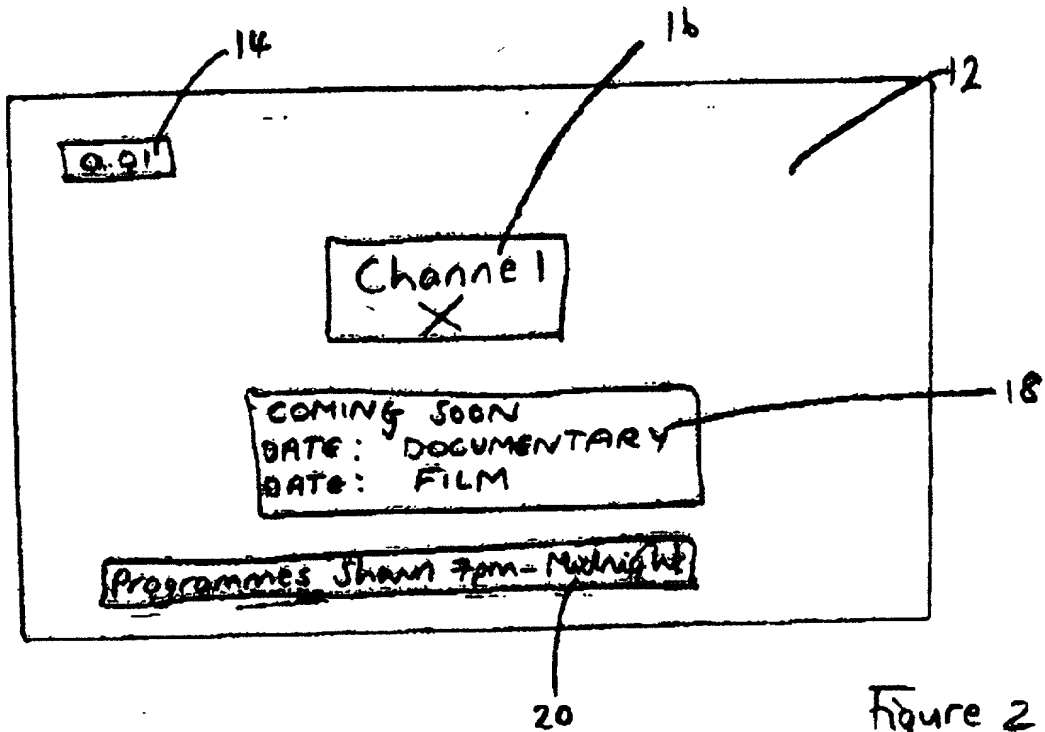 14
16
12
0.01
Channel
X
COMING SOON
DATE: DOCUMENTARY
DATE: FILM
18
Programmes Shown 7pm-Midnight
20
Figure 2